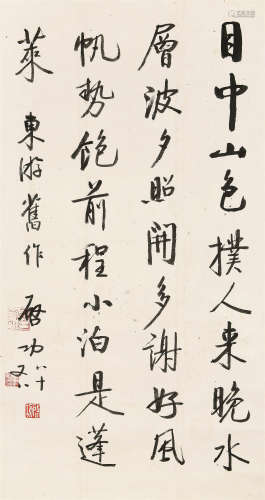 目中山色撲人来晚水
層波夕照開多謝好風
帆勢飽前程小泊是蓬
莱 東游舊作 啓功
八十又八